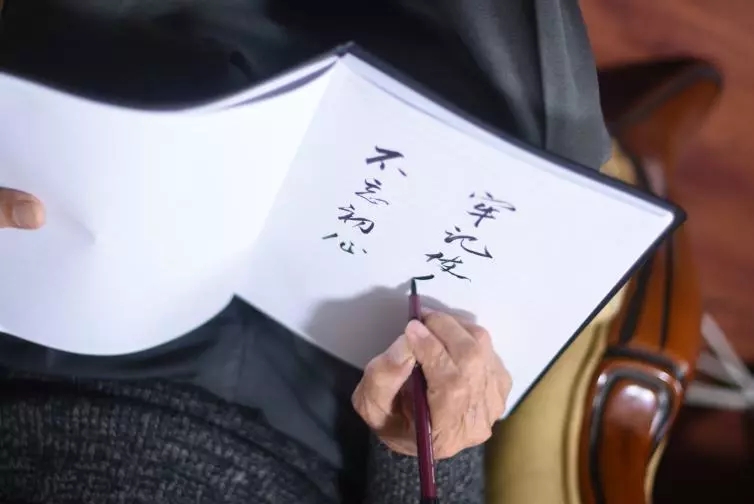 不忘初心
牢记使